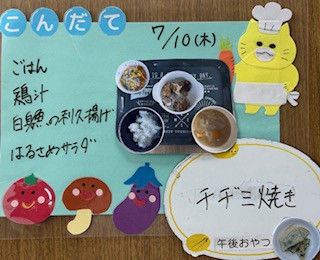 こんだて
7/10(木)
ごはん
鶏汁
白魚の利久揚げ
はるさめサラダ
チヂミ焼き
午後おやつ